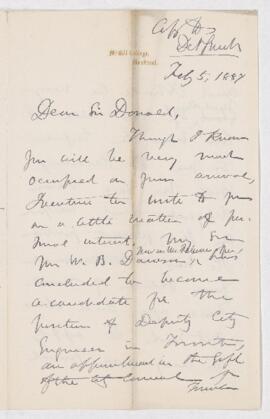 McGill College,
Montreal.
Feby 5, 1887
Dear Sir Donald,
Though I know
you will be very much
occupied on your arrival,
I venture to write to you
on a little matter of per-
sonal interest. My son
W. B. Dawson, has
concluded to become
a candidate for the
position of Deputy City
Engineer in Toronto,
an appointment in the gift
of the City Council